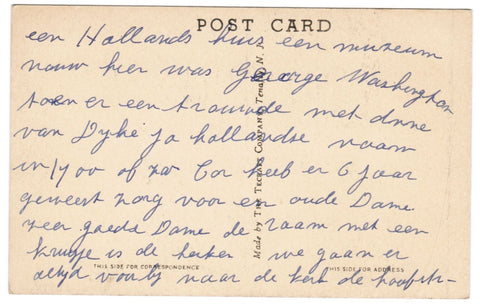 POST CARD
een Hollands huis een muzeum
nouw hier was George Washington
toen er een trouwde met
van Dyke ja hollandse naam
in 1700 of zo Cor heb er 6 jaar
geweest zorg voor en oude Dame
zeer goede Dame de raam met een
kruisje is de we gaan er
altijd voorby naar de kerk de hoofdstr-
Made by THE TECRAFT COMPANY, Tenafly, N. J.
THIS SIDE FOR CORRESPONDENCE
THIS SIDE FOR ADDRESS